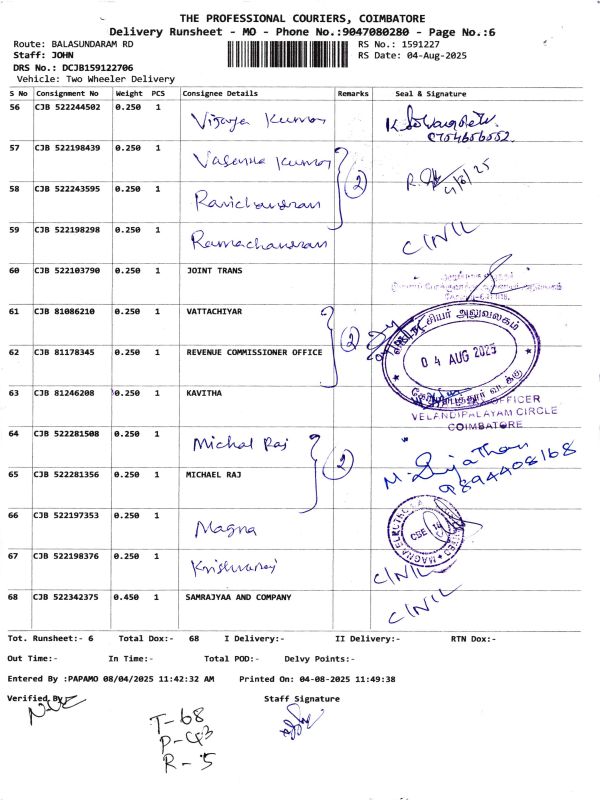 THE PROFESSIONAL COURIERS, COIMBATORE
Delivery Runsheet - MO - Phone No.:9047080280 - Page No.:6
Route: BALASUNDARAM RD RS No.: 1591227
Staff: JOHN RS Date: 04-Aug-2025
DRS No.: DCJB159122706
Vehicle: Two Wheeler Delivery
S No Consignment No Weight PCS Consignee Details Remarks Seal & Signature
56 CJB 522244502 0.250 1 Vijaya Kumar
57 CJB 522198439 0.250 1 Vasantha Kumar
58 CJB 522243595 0.250 1 Ravichandran 2 4/8/25
59 CJB 522198298 0.250 1 Ramachandran C/NIL
60 CJB 522103790 0.250 1 JOINT TRANS
61 CJB 81086210 0.250 1 VATTACHIYAR 2
62 CJB 81178345 0.250 1 REVENUE COMMISSIONER OFFICE
04 AUG 2025
63 CJB 81246208 0.250 1 KAVITHA
OFFICER
VELANDIPALAYAM CIRCLE
COIMBATORE
64 CJB 522281508 0.250 1 Michal Raj 2
65 CJB 522281356 0.250 1 MICHAEL RAJ M. Sujathan
9894408168
66 CJB 522197353 0.250 1 Magna
67 CJB 522198376 0.250 1 Krishnaraj C/NIL
68 CJB 522342375 0.450 1 SAMRAJYAA AND COMPANY C/NIL
Tot. Runsheet:- 6 Total Dox:- 68 I Delivery:- II Delivery:- RTN Dox:-
Out Time:- In Time:- Total POD:- Delvy Points:-
Entered By :PAPAMO 08/04/2025 11:42:32 AM Printed On: 04-08-2025 11:49:38
Verified By Staff Signature
T-68
P-43
R-5